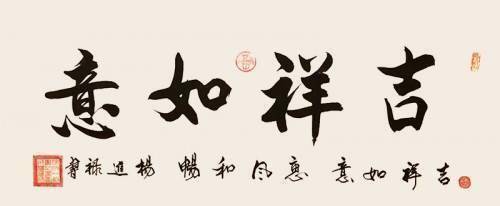 吉祥如意
吉祥如意惠风和暢楊進禄書